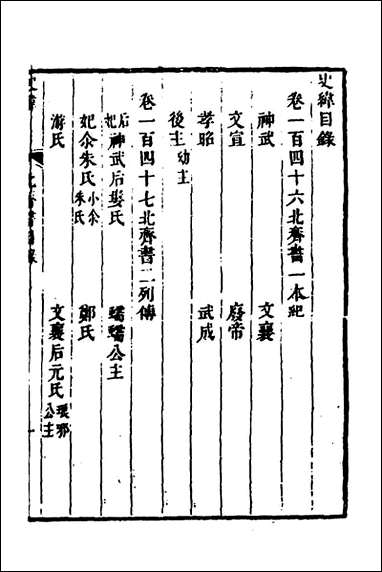 史緯目錄
卷一百四十六北齊書一本紀
神武　文襄
文宣　廢帝
孝昭　武成
後主幼主
卷一百四十七北齊書二列傳
后妃神武后婁氏　蠕蠕公主
妃尒朱氏小尒朱氏　鄭氏
游氏　文襄后元氏琅邪公主
北齊書目錄　一